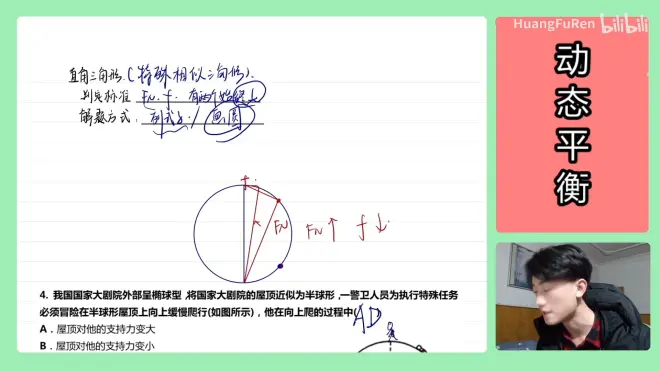 HuangFuRen bilibili
动态平衡
直角三角形.(特殊相似三角形).
判定标准 FN、f. 有两个始终⊥
解题方式:列式子/画圆
f
FN FN↑ f↓
4. 我国国家大剧院外部呈椭球型,将国家大剧院的屋顶近似为半球形,一警卫人员为执行特殊任务
必须冒险在半球形屋顶上向上缓慢爬行(如图所示),他在向上爬的过程中(
AD
A．屋顶对他的支持力变大
B．屋顶对他的支持力变小